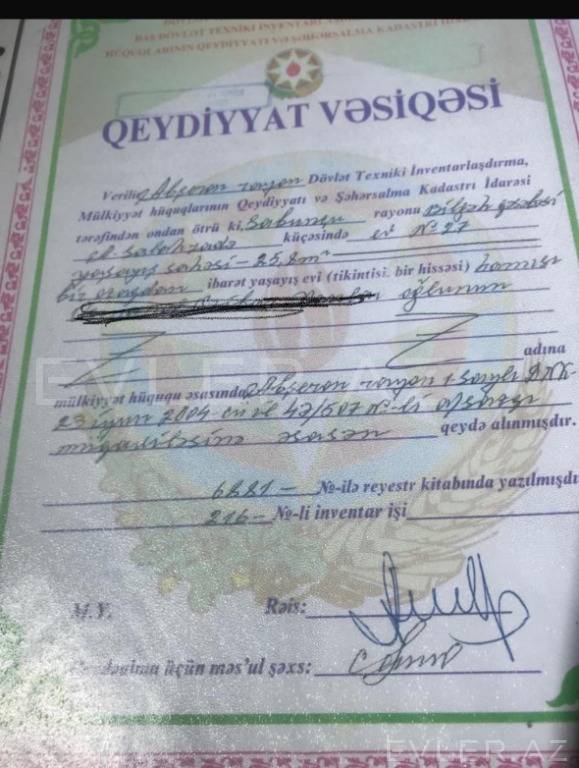 DÖVLƏT TEXNİKİ İNVENTARLAŞDIRMA
BAŞ DÖVLƏT TEXNİKİ İNVENTARLAŞDIRMA
HÜQUQLARININ QEYDİYYATI VƏ ŞƏHƏRSALMA KADASTRI İDARƏSİ
QEYDİYYAT VƏSİQƏSİ
Verilir Abşeron rayon Dövlət Texniki İnventarlaşdırma,
Mülkiyyət hüquqlarının Qeydiyyatı və Şəhərsalma Kadastrı İdarəsi
tərəfindən ondan ötrü ki, Sabunçu rayonu Bilgəh qəsəbəsi
küçəsində ev №27
yaşayış sahəsi – 25,8 m²
bir otaqdan ibarət yaşayış evi (tikintisi, bir hissəsi) hamısı
oğlunun
EVLER.AZ
adına
mülkiyyət hüququ əsasında Abşeron rayon 1 saylı DNK
23 iyun 2004-cü il 47/507 №-li
müqaviləsinə əsasən qeydə alınmışdır.
6881– №-ilə reyestr kitabında yazılmışdı
216– №-li inventar işi
M.Y. Rəis:
üçün məs'ul şəxs:
EVLER.AZ